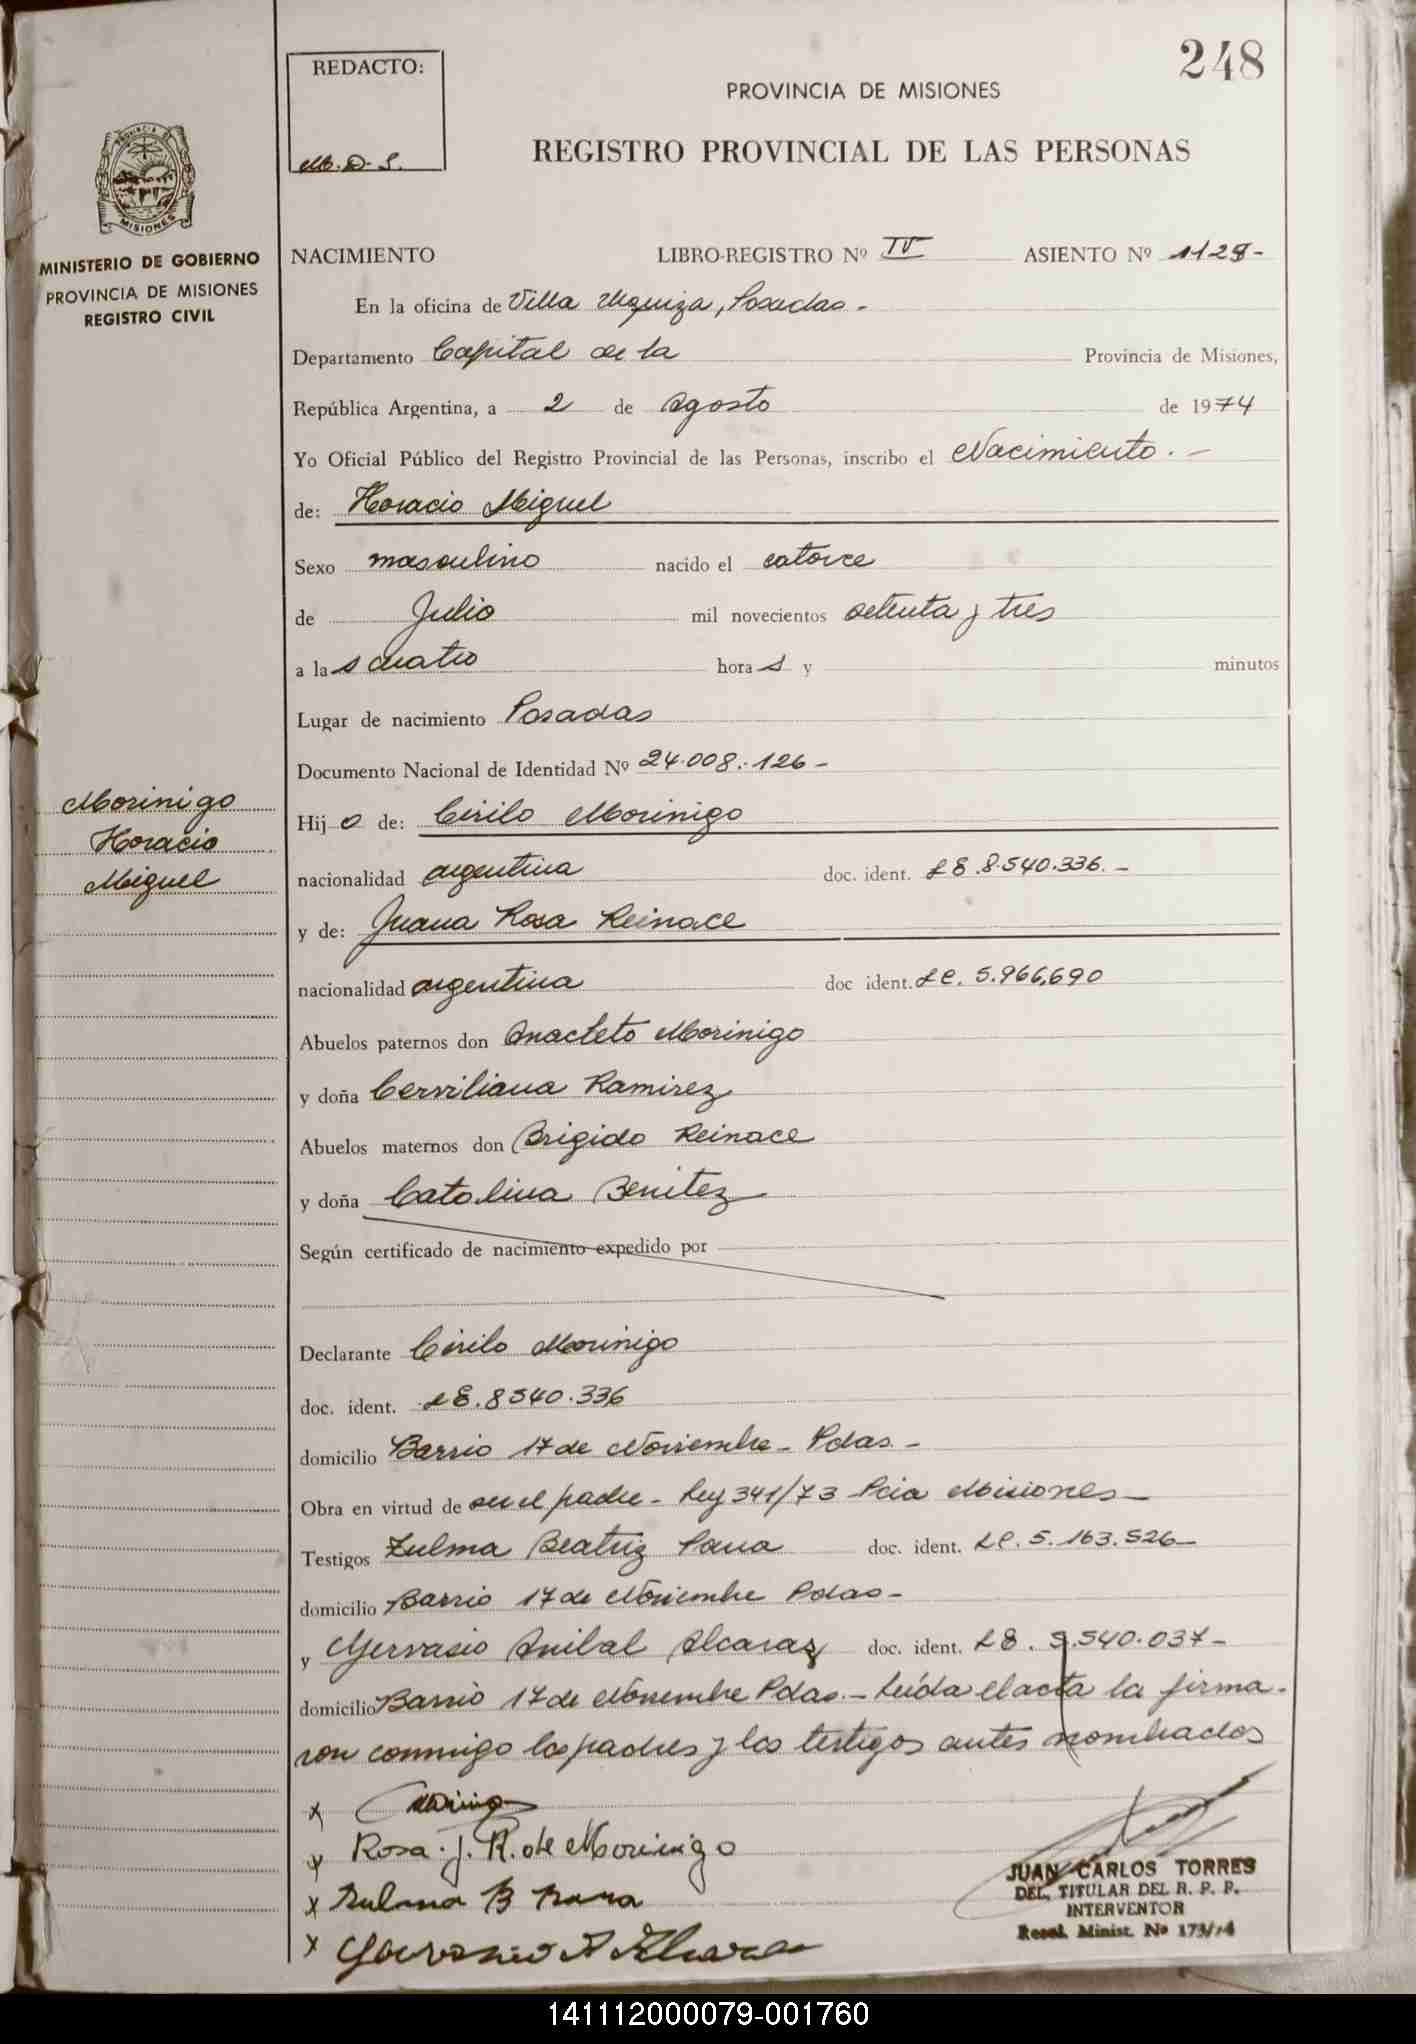 248
REDACTO:
M.D.S.
PROVINCIA DE MISIONES
REGISTRO PROVINCIAL DE LAS PERSONAS
PROVINCIA DE
MISIONES
MINISTERIO DE GOBIERNO
PROVINCIA DE MISIONES
REGISTRO CIVIL
NACIMIENTO LIBRO-REGISTRO Nº IV ASIENTO Nº 1128-
En la oficina de Villa Urquiza, Posadas -
Departamento Capital de la Provincia de Misiones,
República Argentina, a 2 de Agosto de 1974
Yo Oficial Público del Registro Provincial de las Personas, inscribo el Nacimiento. -
de: Horacio Miguel
Sexo masculino nacido el catorce
de Julio mil novecientos setenta y tres
a la s cuatro hora s y minutos
Lugar de nacimiento Posadas
Documento Nacional de Identidad Nº 24.008.126 -
Morinigo
Horacio
Miguel
Hij o de: Cirilo Morinigo
nacionalidad argentina doc. ident. LE 8.540.336. -
y de: Juana Rosa Reinace
nacionalidad argentina doc ident. LC. 5.966,690
Abuelos paternos don Anacleto Morinigo
y doña Cerviliana Ramirez
Abuelos maternos don Brigido Reinace
y doña Catalina Benitez
Según certificado de nacimiento expedido por
Declarante Cirilo Morinigo
doc. ident. LE. 8540.336
domicilio Barrio 17 de Noviembre - Pdas. -
Obra en virtud de ser el padre - Ley 341/73 Pcia Misiones -
Testigos Zulma Beatriz Pava doc. ident. LC. 5.163.526 -
domicilio Barrio 17 de Noviembre Pdas -
y Gervasio Anibal Alcaraz doc. ident. LE. 8.540.037 -
domicilio Barrio 17 de Noviembre Pdas. - Leída el acta la firma-
ron conmigo los padres y los testigos antes nombrados
x
x Rosa. J. R. de Morinigo
x Zulma B
x Gervasio A Alcaraz
JUAN CARLOS TORRES
DEL. TITULAR DEL R. P. P.
INTERVENTOR
Resol. Minist. Nº 173/74
141112000079-001760